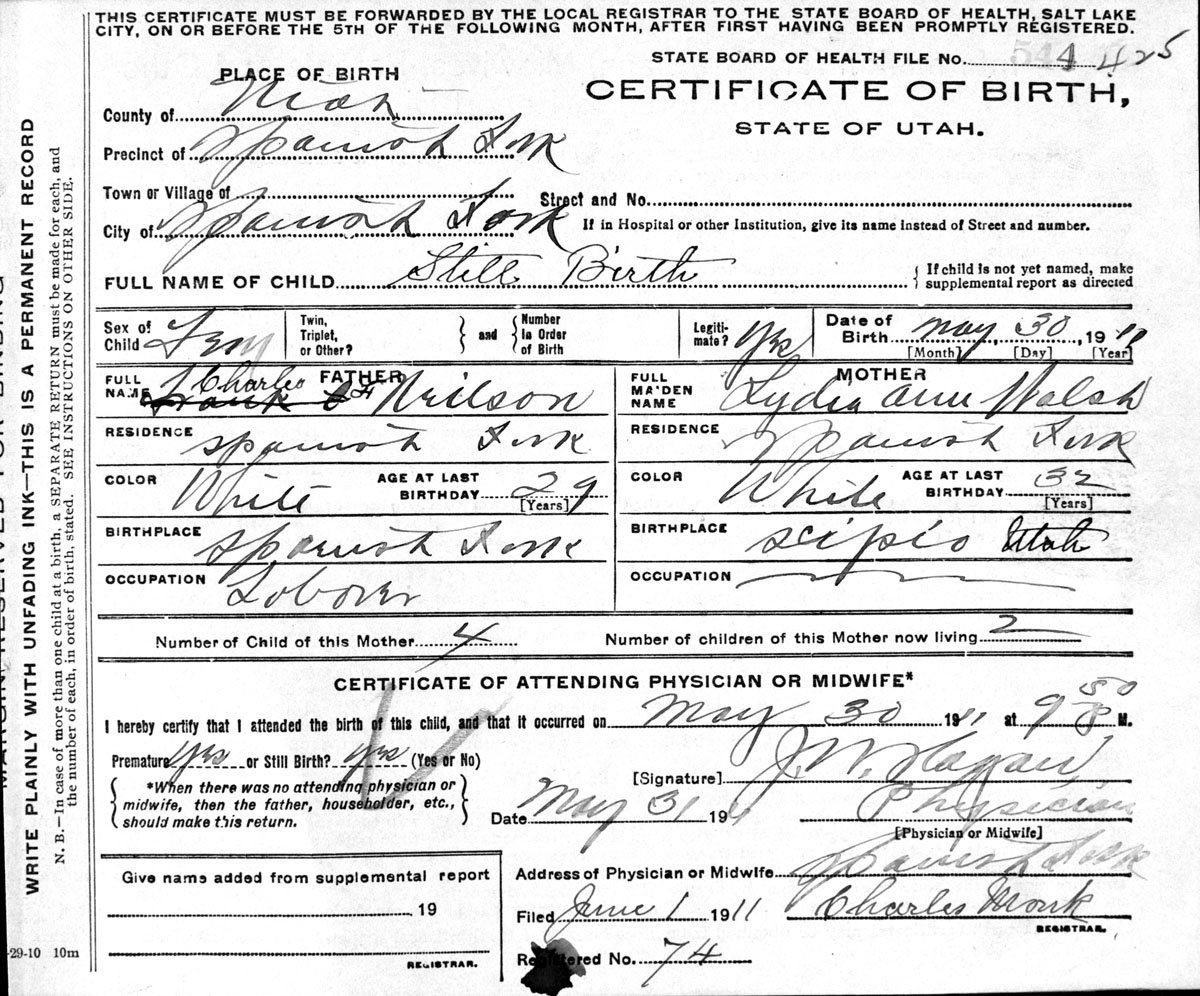 THIS CERTIFICATE MUST BE FORWARDED BY THE LOCAL REGISTRAR TO THE STATE BOARD OF HEALTH, SALT LAKE
CITY, ON OR BEFORE THE 5TH OF THE FOLLOWING MONTH, AFTER FIRST HAVING BEEN PROMPTLY REGISTERED.
STATE BOARD OF HEALTH FILE NO. 425
PLACE OF BIRTH
CERTIFICATE OF BIRTH,
STATE OF UTAH.
County of Utah
Precinct of Spanish Fork
Town or Village of
Street and No.
City of Spanish Fork
If in Hospital or other Institution, give its name instead of Street and number.
FULL NAME OF CHILD Still Birth
If child is not yet named, make
supplemental report as directed
Sex of Child Fem
Twin, Triplet, or Other?
and
Number in Order of Birth
Legiti-mate? yes
Date of Birth May 30 1911
[Month] [Day] [Year]
FATHER
FULL NAME Charles Neilson
RESIDENCE Spanish Fork
COLOR White
AGE AT LAST BIRTHDAY 29
[Years]
BIRTHPLACE Spanish Fork
OCCUPATION Laborer
MOTHER
FULL MAIDEN NAME Lydia Ann Walsh
RESIDENCE Spanish Fork
COLOR White
AGE AT LAST BIRTHDAY 32
[Years]
BIRTHPLACE Scipio Utah
OCCUPATION
Number of Child of this Mother 4
Number of children of this Mother now living 2
CERTIFICATE OF ATTENDING PHYSICIAN OR MIDWIFE*
I hereby certify that I attended the birth of this child, and that it occurred on May 30 1911 at 9 50 P M.
Premature yes or Still Birth? yes (Yes or No)
*When there was no attending physician or
midwife, then the father, householder, etc.,
should make this return.
[Signature] J. W. Hagan
Date May 31 1911
Physician
[Physician or Midwife]
Address of Physician or Midwife Spanish Fork
Filed June 1 1911 Charles Monk
REGISTRAR.
Registered No. 74
Give name added from supplemental report
19
REGISTRAR.
29-10 10m
WRITE PLAINLY WITH UNFADING INK—THIS IS A PERMANENT RECORD
N. B.—In case of more than one child at a birth, a SEPARATE RETURN must be made for each, and
the number of each, in order of birth, stated. SEE INSTRUCTIONS ON OTHER SIDE.